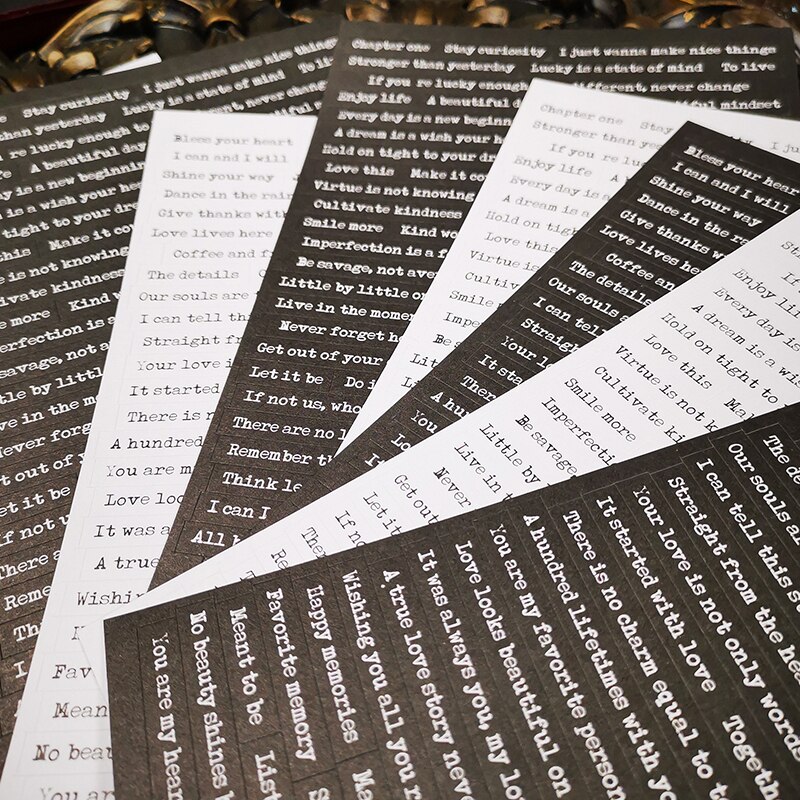 Stay curiosity I just wanna make nice things
than yesterday Lucky is a state of mind
re lucky enough to
A beautiful day
is a new beginning
is a wish your hea
tight to your
this Make it co
is not knowing
kindness
more Kind
is a
savage, not a
by little
in the mom
Never forg
out of y
Let it be
If not u
There a
Reme
Th
I
Bless your heart
I can and I will
Shine your way
Dance in the rain
Give thanks with
Love lives here
Coffee and f
The details
Our souls are
I can tell th
Straight f
Your love i
It started
There is n
A hundred
You are m
Love loo
It was a
A true
Wishin
Fav
Mean
No beau
You ar
Chapter one Stay curiosity I just wanna make nice things
Stronger than yesterday Lucky is a state of mind To live
If you re lucky enough different, never change
Enjoy life A beautiful d mindset
Every day is a new beginn
A dream is a wish your h
Hold on tight to your dr
Love this Make it co
Virtue is not knowing
Cultivate kindness
Smile more Kind wo
Imperfection is a f
Be savage, not ave
Little by little o
Live in the momen
Never forget h
Get out of your
Let it be Do i
If not us, who
There are no l
Remember t
Think le
I can I
All
Chapter one Stay
Stronger than yes
If you re lu
Enjoy life A
Every day is a
A dream is a
Hold on tig
Love this
Virtue is
Cultiv
Smile
Impe
Be
Lit
Li
Bless your hear
I can and I will
Shine your way
Dance in the ra
Give thanks w
Love lives he
Coffee an
The details
Our souls
I can tell
Straigh
Your l
It sta
Ther
A hu
You
Lo
It
St
If
Enjoy lif
Every day is
A dream is a wi
Hold on tight to
Love this Ma
Virtue is not k
Cultivate ki
Smile more
Imperfecti
Be savage
Little by
Live in t
Never
Get out
Let it
If no
Ther
Re
The de
Our souls a
I can tell this s
Straight from the hea
Your love is not only words
It started with love Togeth
There is no charm equal to t
A hundred lifetimes with yo
You are my favorite person
Love looks beautiful on
It was always you, my lo
A true love story neve
Wishing you all you
Happy memories
Favorite memory
Meant to be List
No beauty shines b
You are my hear